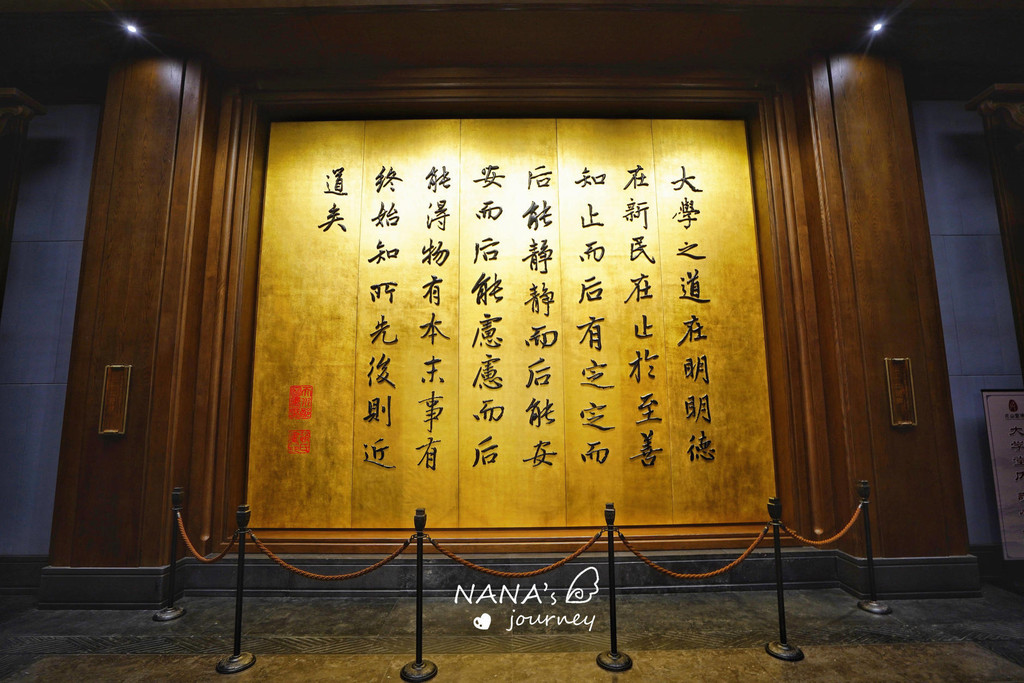 大學之道在明明德
在新民在止於至善
知止而后有定定而
后能靜靜而后能安
安而后能慮慮而后
能得物有本末事有
終始知所先後則近
道矣
NANA's
journey